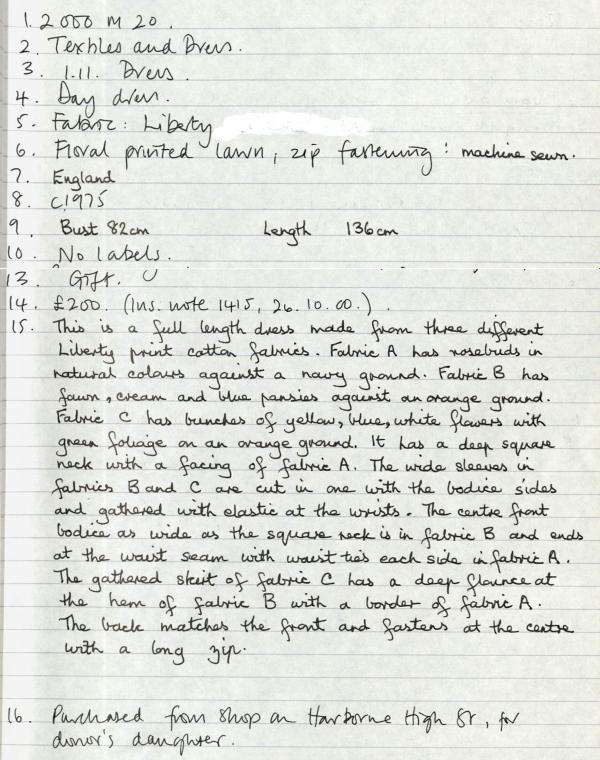 1. 2000 M 20.
2. Textiles and Dress.
3. 1.11. Dress.
4. Day dress.
5. Fabric: Liberty
6. Floral printed lawn, zip fastening: machine sewn.
7. England
8. C1975
9. Bust 82cm Length 136cm
10. No labels.
13. Gift.
14. £200. (Ins. note 1415, 26.10.00.).
15. This is a full length dress made from three different
Liberty print cotton fabrics. Fabric A has rosebuds in
natural colours against a navy ground. Fabric B has
fawn, cream and blue pansies against an orange ground.
Fabric C has bunches of yellow, blue, white flowers with
green foliage on an orange ground. It has a deep square
neck with a facing of fabric A. The wide sleeves in
fabrics B and C are cut in one with the bodice sides
and gathered with elastic at the wrists. The centre front
bodice as wide as the square neck is in fabric B and ends
at the waist seam with waist ties each side in fabric A.
The gathered skirt of fabric C has a deep flounce at
the hem of fabric B with a border of fabric A.
The back matches the front and fastens at the centre
with a long zip.
16. Purchased from shop on Harborne High St, for
donor's daughter.